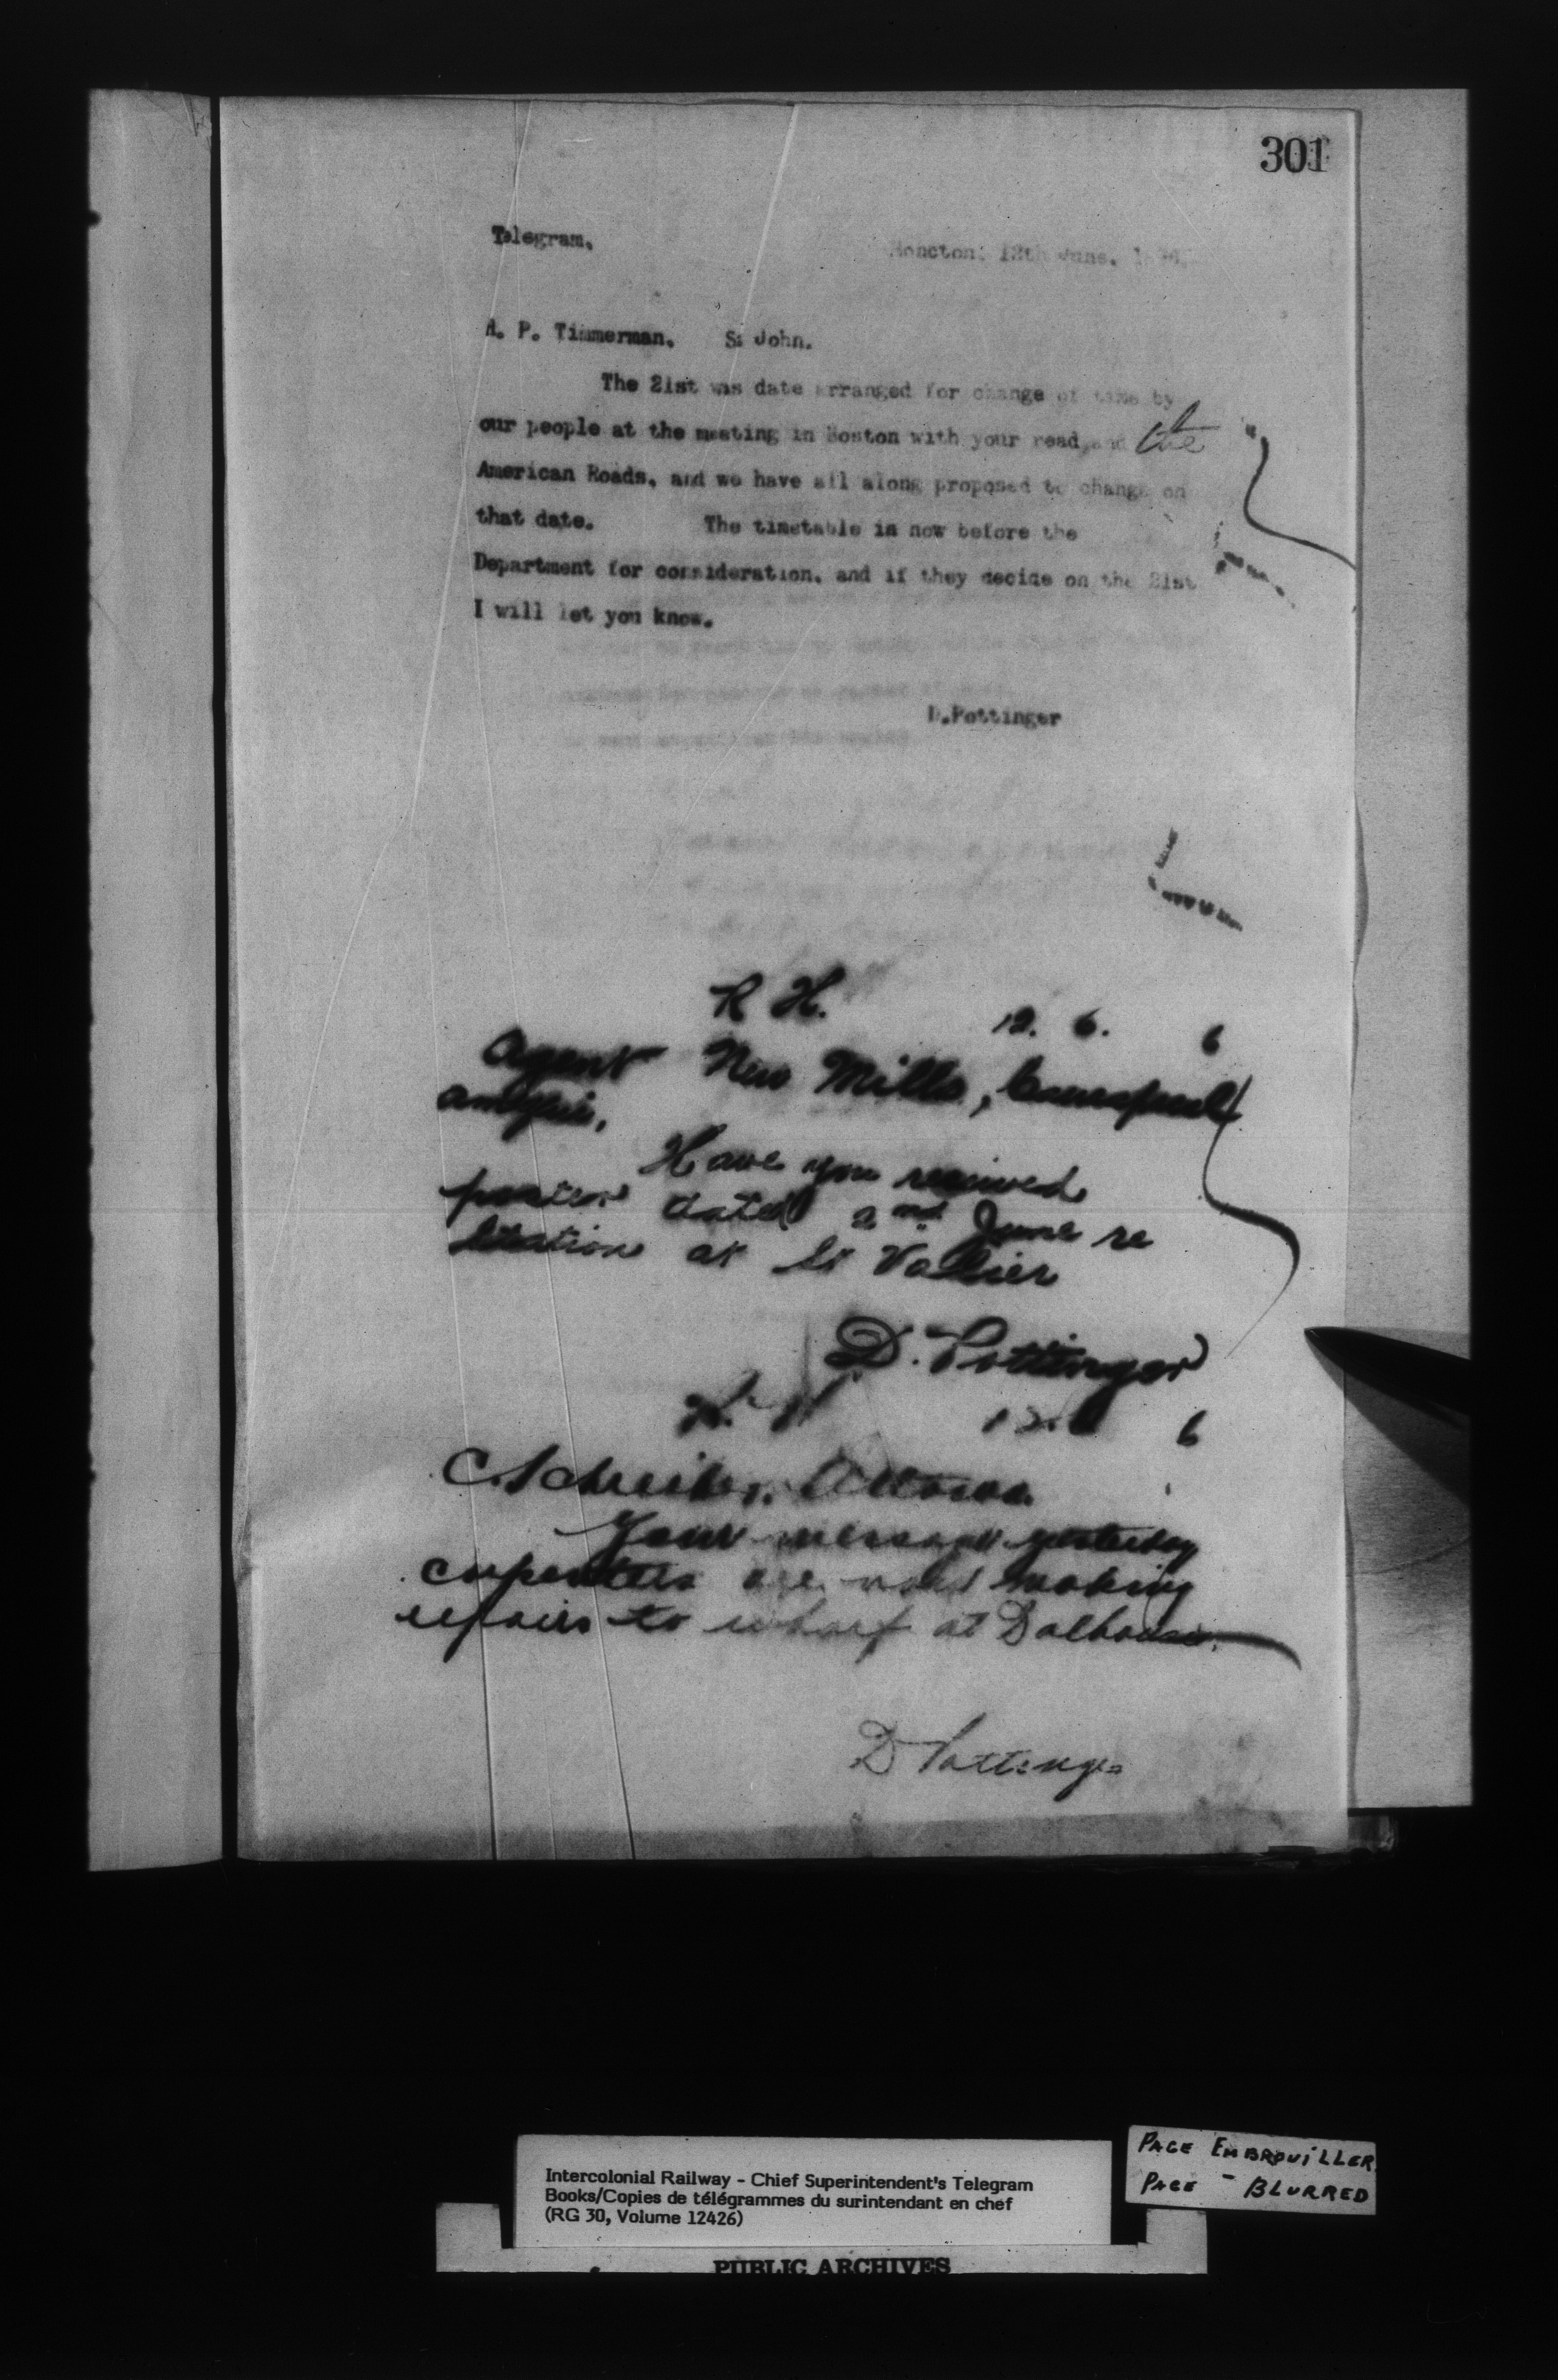 301
Telegram.
Moncton: 12th June.
H. P. Timmerman. St John.
The 21st was date arranged for change of time by
our people at the meeting in Boston with your road, and the
American Roads, and we have all along proposed to change on
that date. The timetable is now before the
Department for consideration. and if they decide on the 21st
I will let you know.
D.Pottinger
R H. 12. 6. 6
Agent New Mills,
Have you received
dated 2nd June re
at St Vallier
D. Pottinger
6
C. Schreiber. Ottawa.
Your message yesterday
carpenters are now making
repairs to wharf at Dalhousie.
D Pottinger
PAGE EMBROUILLER
PAGE - BLURRED
Intercolonial Railway - Chief Superintendent's Telegram
Books/Copies de télégrammes du surintendant en chef
(RG 30, Volume 12426)
PUBLIC ARCHIVES